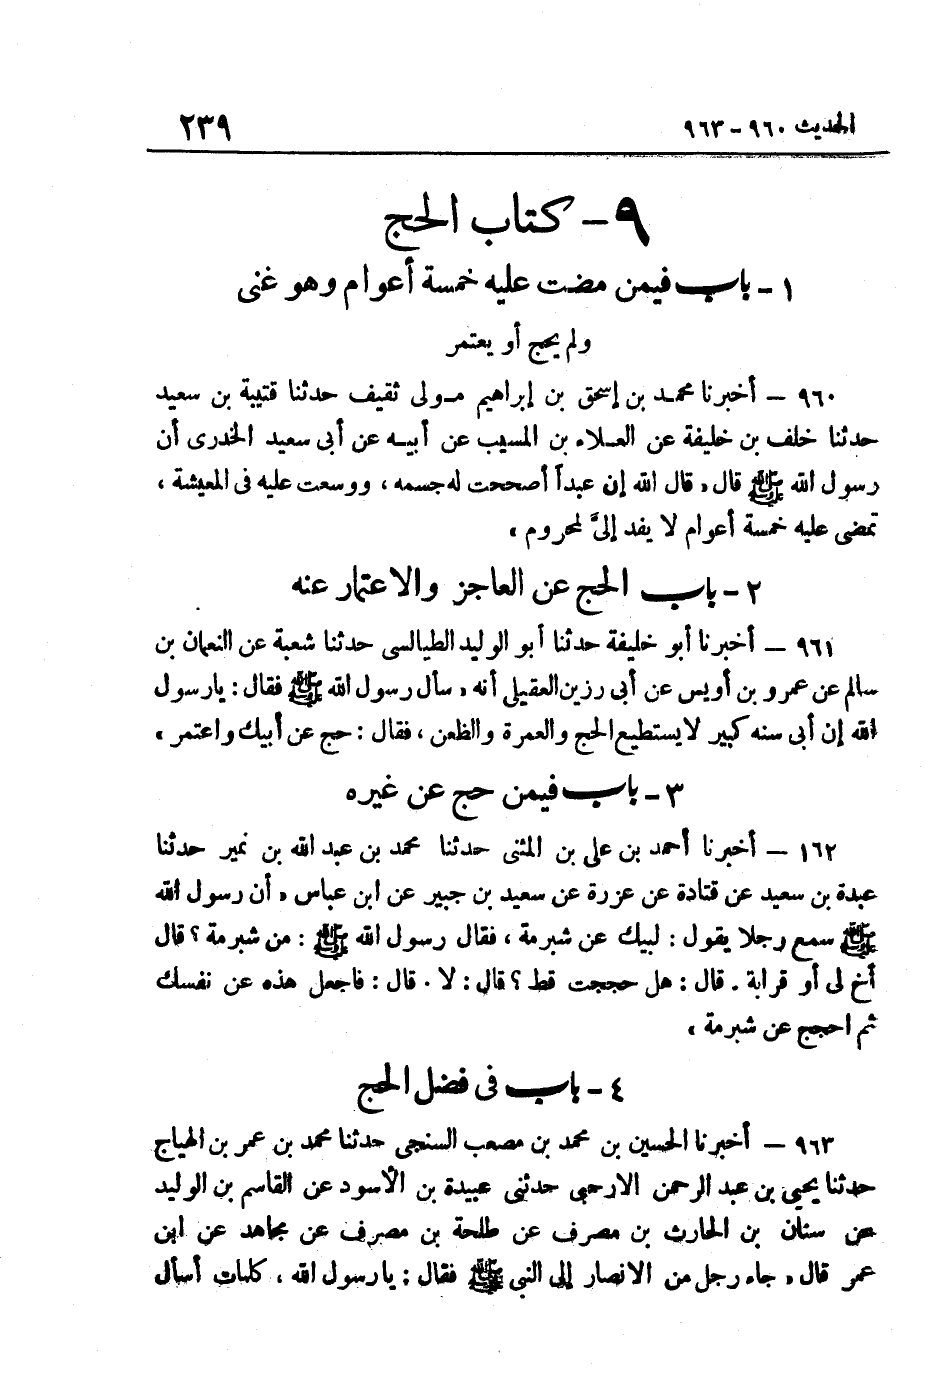 الحديث ٩٦٠ - ٩٦٣
٢٣٩
٩ - كتاب الحج
١ - باب فيمن مضت عليه خمسة أعوام وهو غنى
ولم يحج أو يعتمر
٩٦٠ - أخبرنا محمد بن إسحق بن إبراهيم مولى ثقيف حدثنا قتيبة بن سعيد
حدثنا خلف بن خليفة عن العلاء بن المسيب عن أبيه عن أبى سعيد الخدرى أن
رسول الله ﷺ قال « قال الله إن عبداً أصححت له جسمه ، ووسعت عليه فى المعيشة ،
تمضى عليه خمسة أعوام لا يفد إلىَّ لمحروم »
٢ - باب الحج عن العاجز والاعتمار عنه
٩٦١ - أخبرنا أبو خليفة حدثنا أبو الوليد الطيالسى حدثنا شعبة عن النعمان بن
سالم عن عمرو بن أويس عن أبى رزين العقيلى أنه « سأل رسول الله ﷺ فقال : يارسول
الله إن أبى سنه كبير لا يستطيع الحج والعمرة والظعن ، فقال : حج عن أبيك واعتمر »
٣ - باب فيمن حج عن غيره
١٦٢ - أخبرنا أحمد بن على بن المثنى حدثنا محمد بن عبد الله بن نمير حدثنا
عبدة بن سعيد عن قتادة عن عزرة عن سعيد بن جبير عن ابن عباس « أن رسول الله
ﷺ سمع رجلا يقول : لبيك عن شبرمة ، فقال رسول الله ﷺ : من شبرمة ؟ قال
أخ لى أو قرابة . قال : هل حججت قط ؟ قال : لا . قال : فاجعل هذه عن نفسك
ثم احجج عن شبرمة »
٤ - باب فى فضل الحج
٩٦٣ - أخبرنا الحسين بن محمد بن مصعب السنجى حدثنا محمد بن عمر بن الهياج
حدثنا يحيى بن عبد الرحمن الارحبى حدثنى عبيدة بن الأسود عن القاسم بن الوليد
عن سنان بن الحارث بن مصرف عن طلحة بن مصرف عن مجاهد عن ابن
عمر قال « جاء رجل من الانصار إلى النبى ﷺ فقال : يارسول الله ، كلمات أسأل